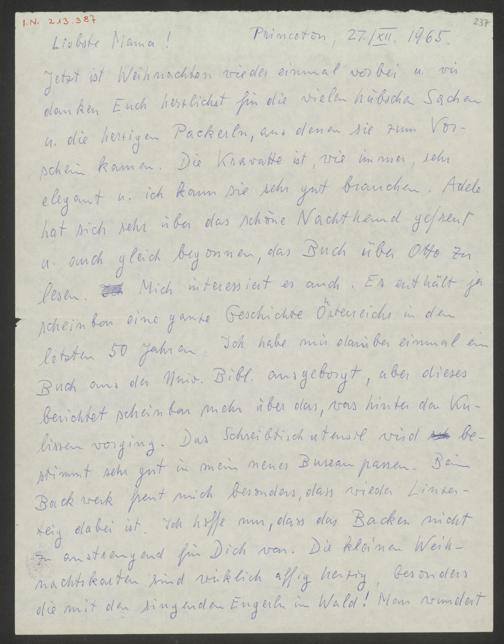 I.N. 213.387
237
Liebste Mama! Princeton, 27./XII. 1965.
Jetzt ist Weihnachten wieder einmal vorbei u. wir
danken Euch herzlichst für die vielen hübschen Sachen
u. die herzigen Packerln, aus denen sie zum Vor-
schein kamen. Die Kravatte ist, wie immer, sehr
elegant u. ich kann sie sehr gut brauchen. Adele
hat sich sehr über das schöne Nachthemd gefreut
u. auch gleich begonnen, das Buch über Otto zu
lesen. Mich interessiert es auch. Es enthält ja
scheinbar eine ganze Geschichte Österreichs in den
letzten 50 Jahren. Ich habe mir darüber einmal ein
Buch aus der Univ. Bibl. ausgeborgt, aber dieses
berichtet scheinbar mehr über das, was hinter den Ku-
lissen vorging. Das Schreibtischutensil wird be-
stimmt sehr gut in mein neues Bureau passen. Beim
Backwerk freut mich besonders, dass wieder Linzer-
teig dabei ist. Ich hoffe nur, dass das Backen nicht
zu anstrengend für Dich war. Die kleinen Weih-
nachtskarten sind wirklich affig herzig, besonders
die mit den singenden Engerln im Wald! Man wundert